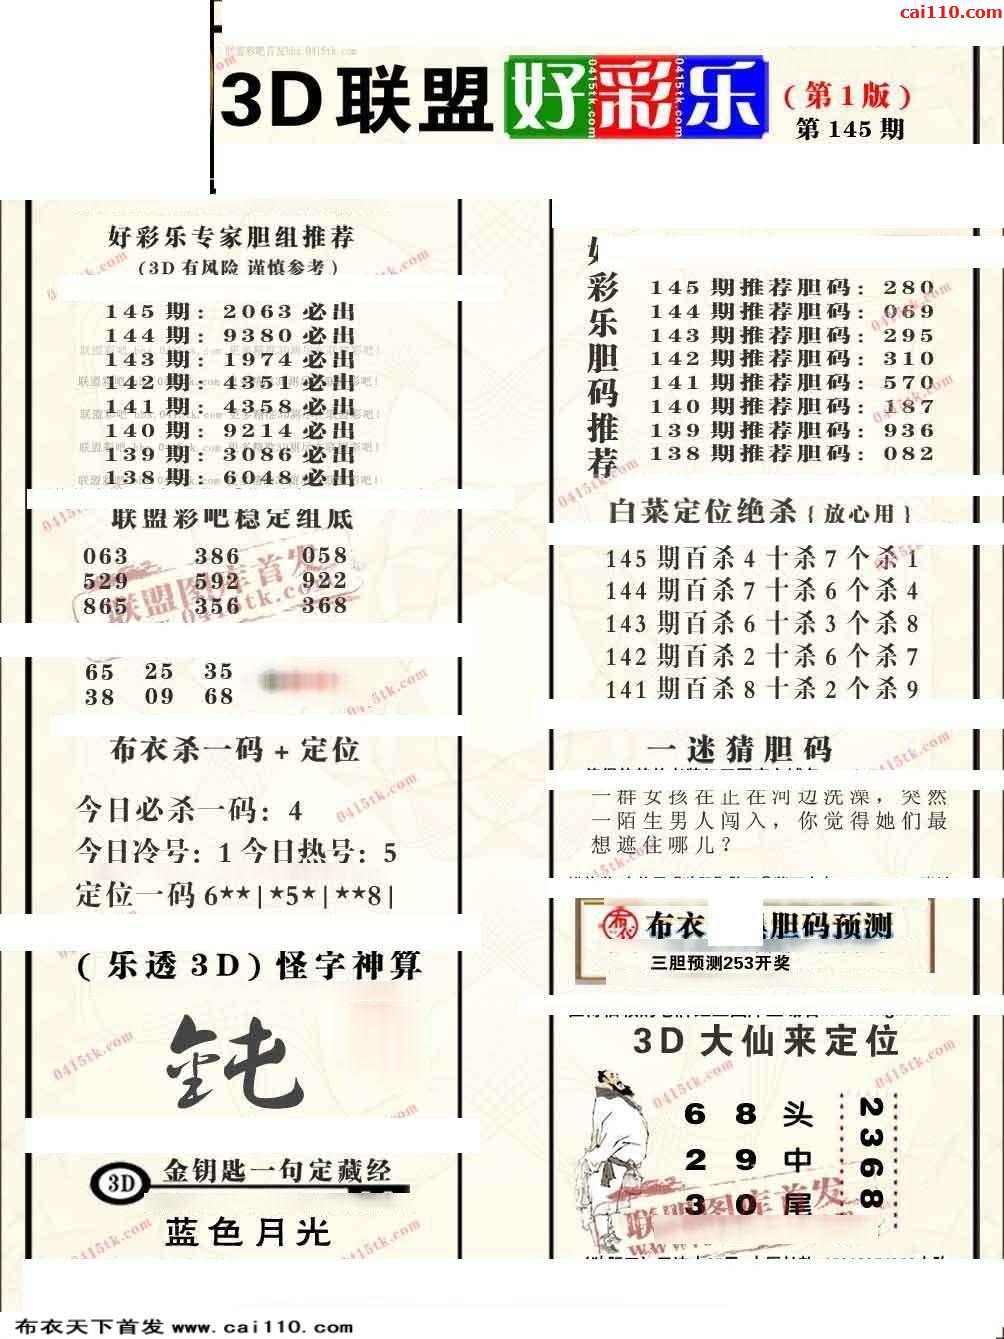 cai110.com
3D联盟好彩乐
(第1版)
第145期
好彩乐专家胆组推荐
(3D有风险 谨慎参考)
145期: 2063必出
144期: 9380必出
143期: 1974必出
142期: 4351必出
141期: 4358必出
140期: 9214必出
139期: 3086必出
138期: 6048必出
联盟彩吧稳定组底
063 386 058
529 592 922
865 356 368
65 25 35
38 09 68
布衣杀一码+定位
今日必杀一码: 4
今日冷号: 1 今日热号: 5
定位一码 6**|*5*|**8|
(乐透3D)怪字神算
钝
3D 金钥匙一句定藏经
蓝色月光
好彩乐胆码推荐
145期推荐胆码: 280
144期推荐胆码: 069
143期推荐胆码: 295
142期推荐胆码: 310
141期推荐胆码: 570
140期推荐胆码: 187
139期推荐胆码: 936
138期推荐胆码: 082
白菜定位绝杀{放心用}
145期百杀4十杀7个杀1
144期百杀7十杀6个杀4
143期百杀6十杀3个杀8
142期百杀2十杀6个杀7
141期百杀8十杀2个杀9
一迷猜胆码
一群女孩在正在河边洗澡，突然
一陌生男人闯入，你觉得她们最
想遮住哪儿？
布衣 胆码预测
三胆预测253开奖
3D大仙来定位
6 8 头
2 9 中
3 0 尾
2368
布衣天下首发 www.cai110.com